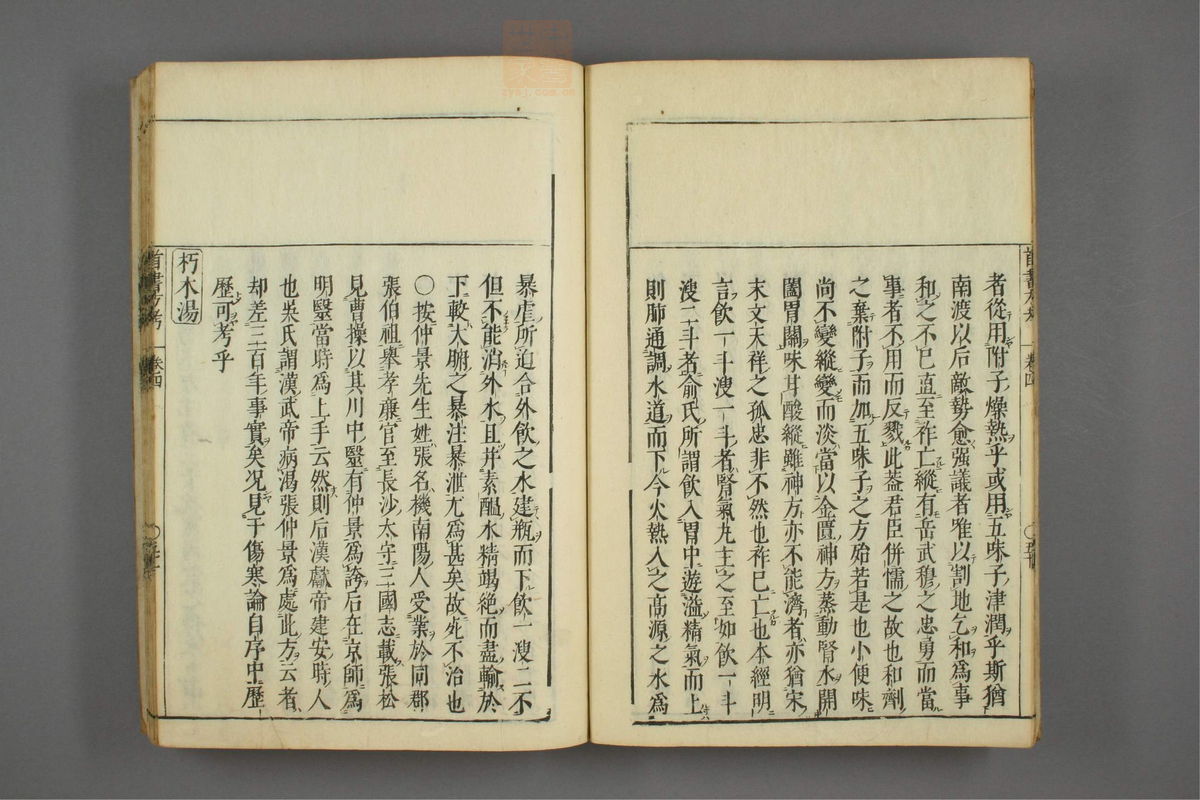 者從用附子燥熱乎或用五味子津潤乎斯猶
南渡以后敵勢愈强議者唯以割地乞和為事
和之不已直至祚亡縱有岳武穆之忠勇而當
事者不用而反戮此葢君臣併懦之故也和劑
之棄附子而加五味子之方殆若是也小便味
尚不變縱變而淡當以金匱神方蒸動腎水開
闔胃關味甘酸縱雖神方亦不能濟者亦猶宋
末文天祥之孤忠非不然也祚已亡也本經明
言飲一斗溲一斗者腎氣丸主之至如飲一斗
溲二斗者俞氏所謂飲入胃中遊溢精氣而上
則肺通調水道而下今火熱入之高源之水為
暴虐所迫合外飲之水建瓶而下飲一溲二不
但不能消外水且并素醞水精竭絶而盡輸於
下較大腑之暴注暴泄尤為甚矣故死不治也
〇按仲景先生姓張名機南陽人受業於同郡
張伯祖舉孝廉官至長沙太守三國志載張松
見曹操以其川中毉有仲景為誇后在京師為
明毉當時為上手云然則后漢獻帝建安時人
也吳氏謂漢武帝病渴張仲景為處此方云者
却差三百年事實矣况見于傷寒論自序中歷
歷可考乎
朽木湯
首書方考 卷四